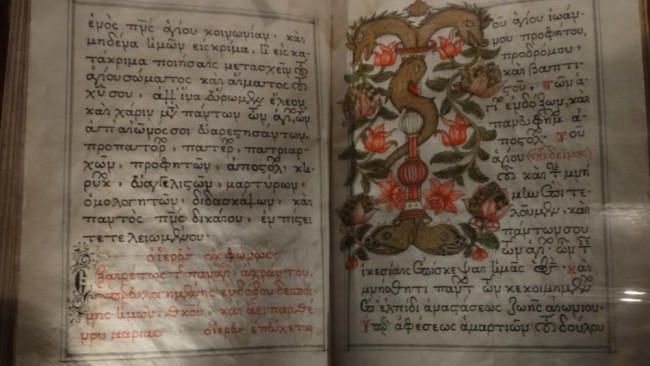 ἑνὸς πν̅ς ἁγίου κοινωνίαν. καὶ
μηδένα ἡμῶν εἰς κρίμα, ἢ εἰς κα
τάκριμα ποιήσαις μετασχεῖν τοῦ
ἁγίου σώματος καὶ αἵματος τοῦ
χ̅υ σου, ἀλλ' ἵνα εὕρωμεν ἔλεον
καὶ χάριν μετὰ πάντων τῶν ἁγίων τῶν
ἀπ' αἰῶνός σοι εὐαρεστησάντων,
προπατόρων, πατέρων, πατριαρ
χῶν, προφητῶν, ἀποστόλων, κη
ρύκων, εὐαγγελιστῶν, μαρτύρων,
ὁμολογητῶν, διδασκάλων, καὶ
παντὸς πν̅ς δικαίου, ἐν πίστει
τετελειωμένου.
ὁ ἱερεὺς ἐκφώνως
Ἐξαιρέτως τῆς παναγίας, ἀχράντου,
ὑπερευλογημένης ἐνδόξου δεσποί
νης ἡμῶν, θ̅κου, καὶ ἀειπαρθέ
νου μαρίας. ὁ ἱερεὺς ἐπεύχεται
τοῦ ἁγίου ἰωάν
νου προφήτου,
προδρόμου,
καὶ βαπτι
στοῦ, τῶν ἁ
γίων ἐνδόξων, καὶ
πανευφήμων ἀ
ποστόλων. τοῦ
ἁγίου (τοῦ δεῖνος)
οὗ καὶ τὴν μνή
μην ἐπιτε
λοῦμεν, καὶ
πάντων σου
τῶν ἁγίων. ὧν ταῖς
ἱκεσίαις ἐπίσκεψαι ἡμᾶς ὁ θ̅ς. Καὶ
μνήσθητι πάντων τῶν κεκοιμημένων
ἐπ' ἐλπίδι ἀναστάσεως ζωῆς αἰωνίου.
Ὑπὲρ ἀφέσεως ἁμαρτιῶν τοῦ δούλου